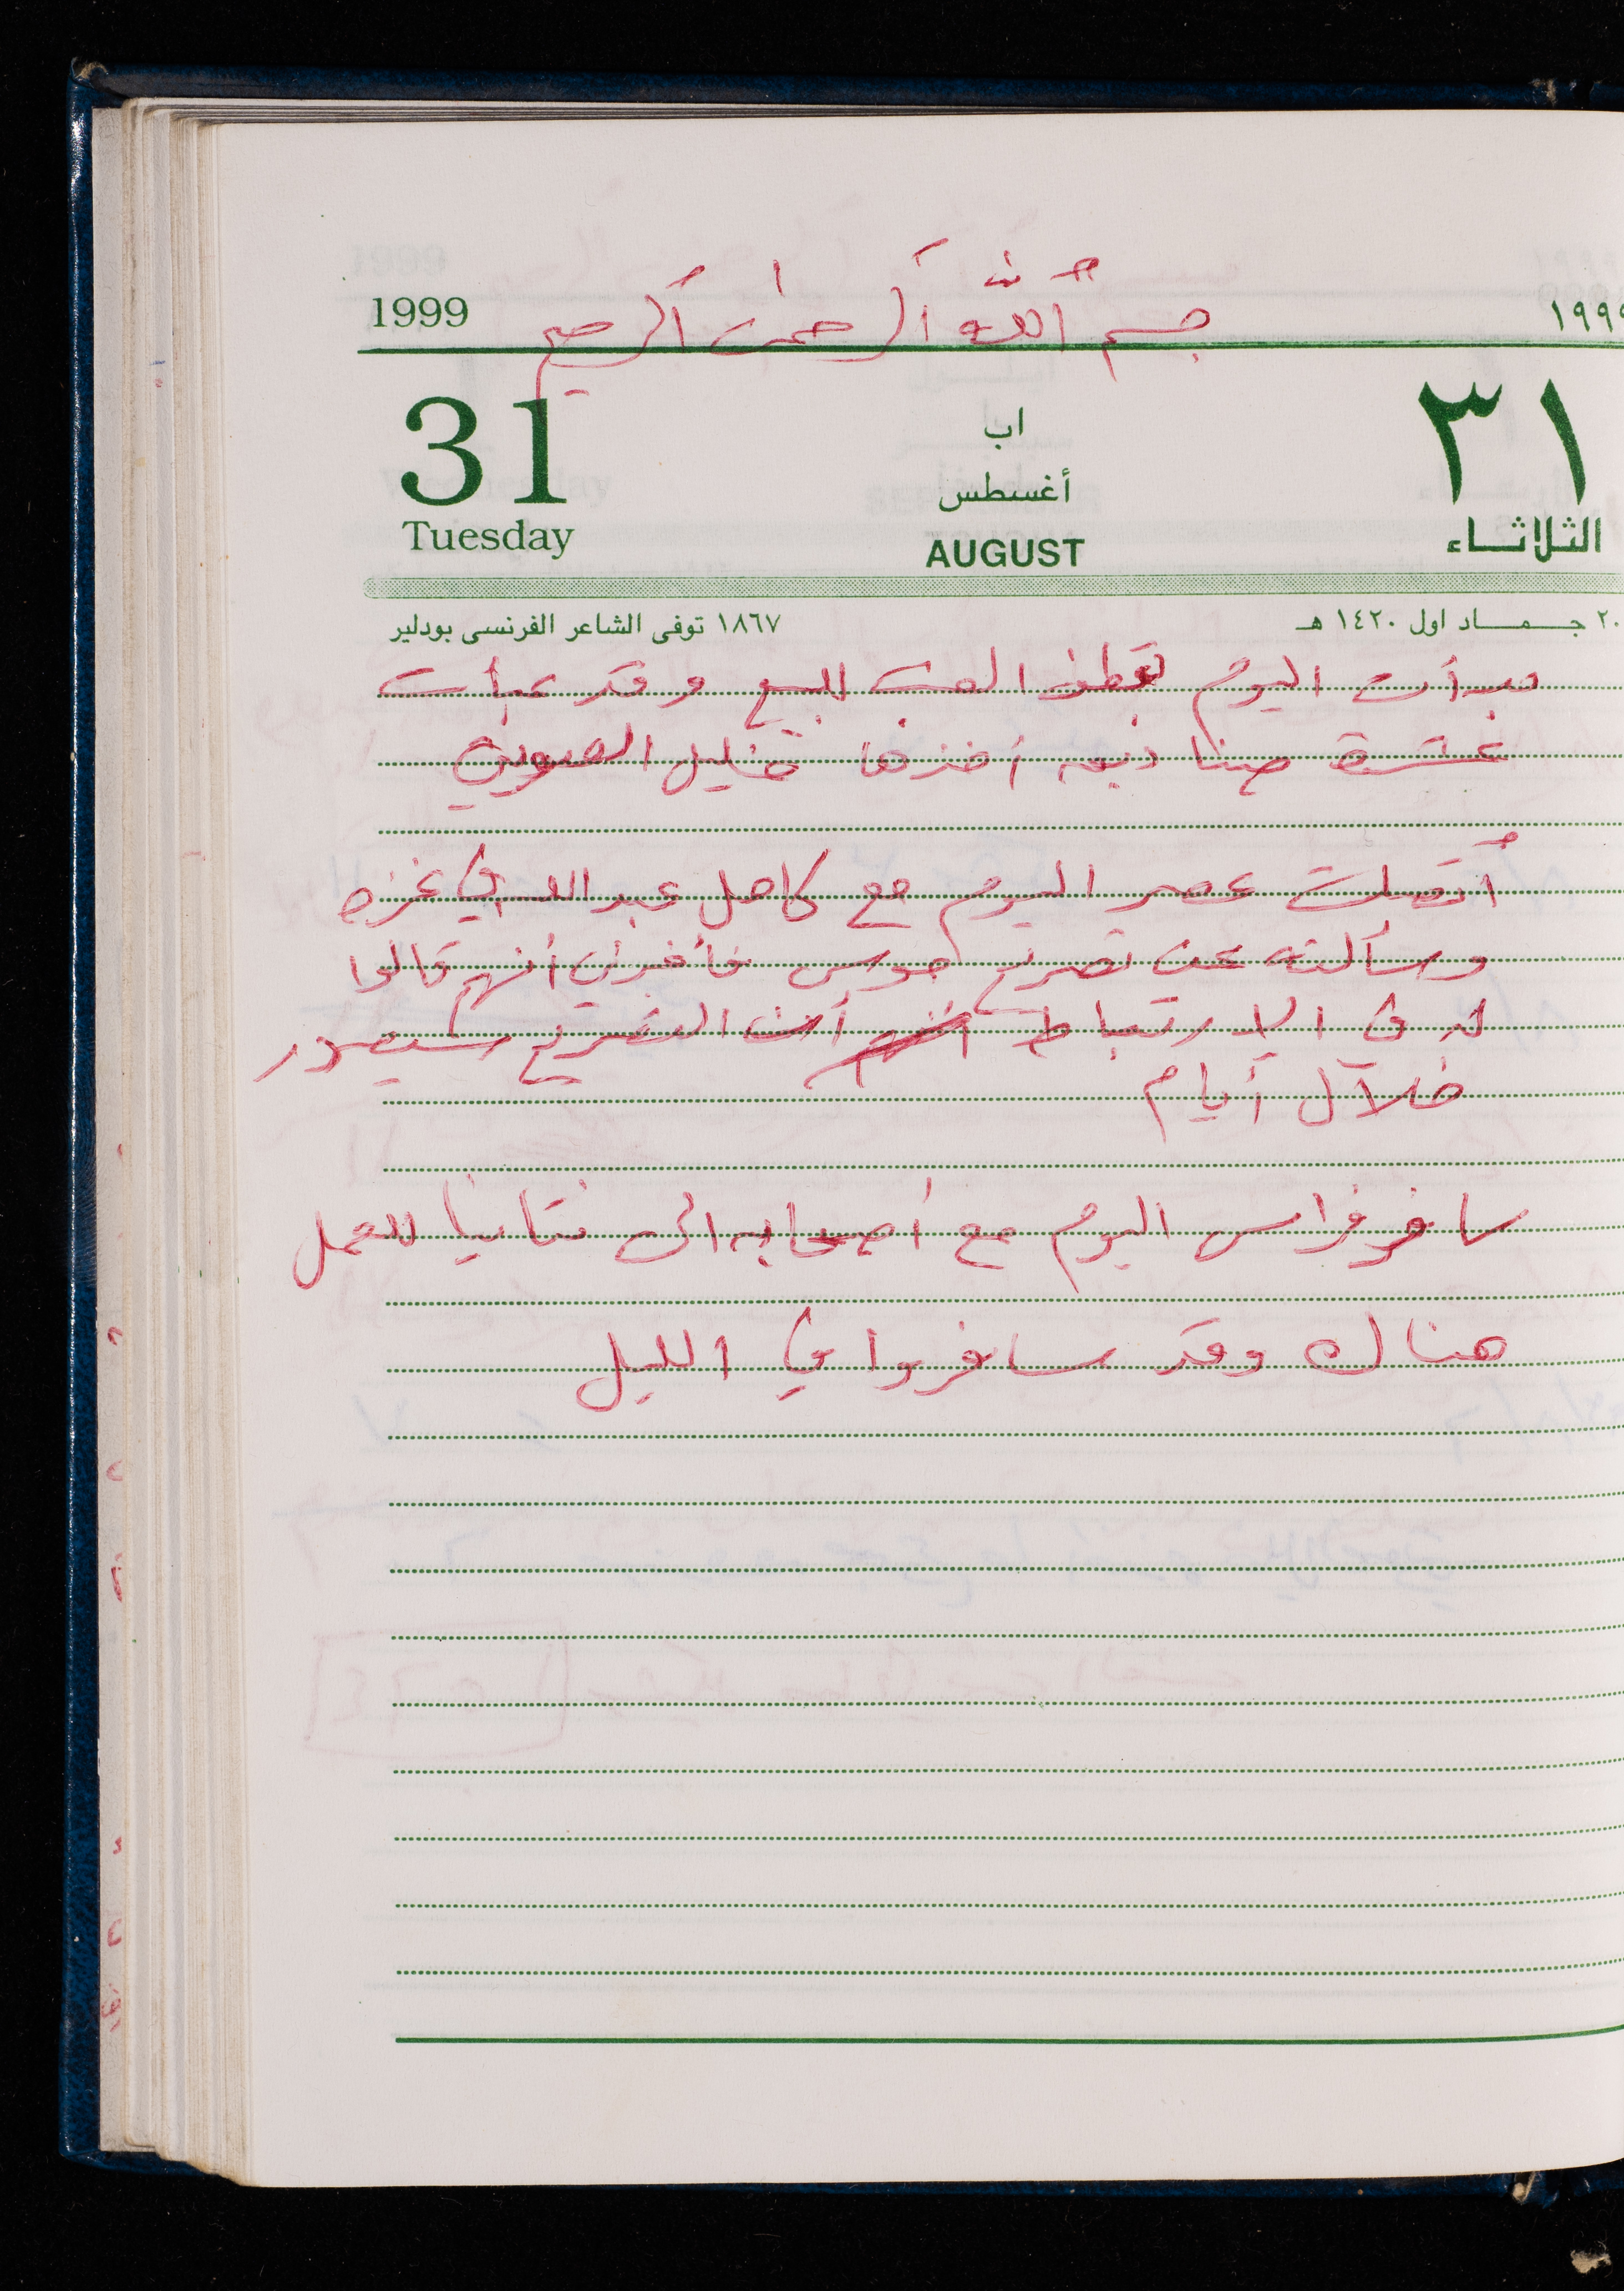 بسم الله الرحمن الرحيم
1999 ١٩٩٩
31 اب ٣١
أغسطس
Tuesday AUGUST الثلاثاء
٢٠ جمـاد اول ١٤٢٠ هـ ١٨٦٧ توفى الشاعر الفرنسى بودلير
بدأت اليوم بقطف العنب للبيع وقد عبأت
عشرة أخذها خليل
أتصلت عصر اليوم مع كامل عبد الله في غزه
وسألته عن تصريح موسى فأخبرني أنهم قالوا
له في الارتباط أن التصريح سيصدر
خلال أيام
سافر فراس اليوم مع أصحابه الى نتانيا للعمل
هناك وقد سافروا في الليل